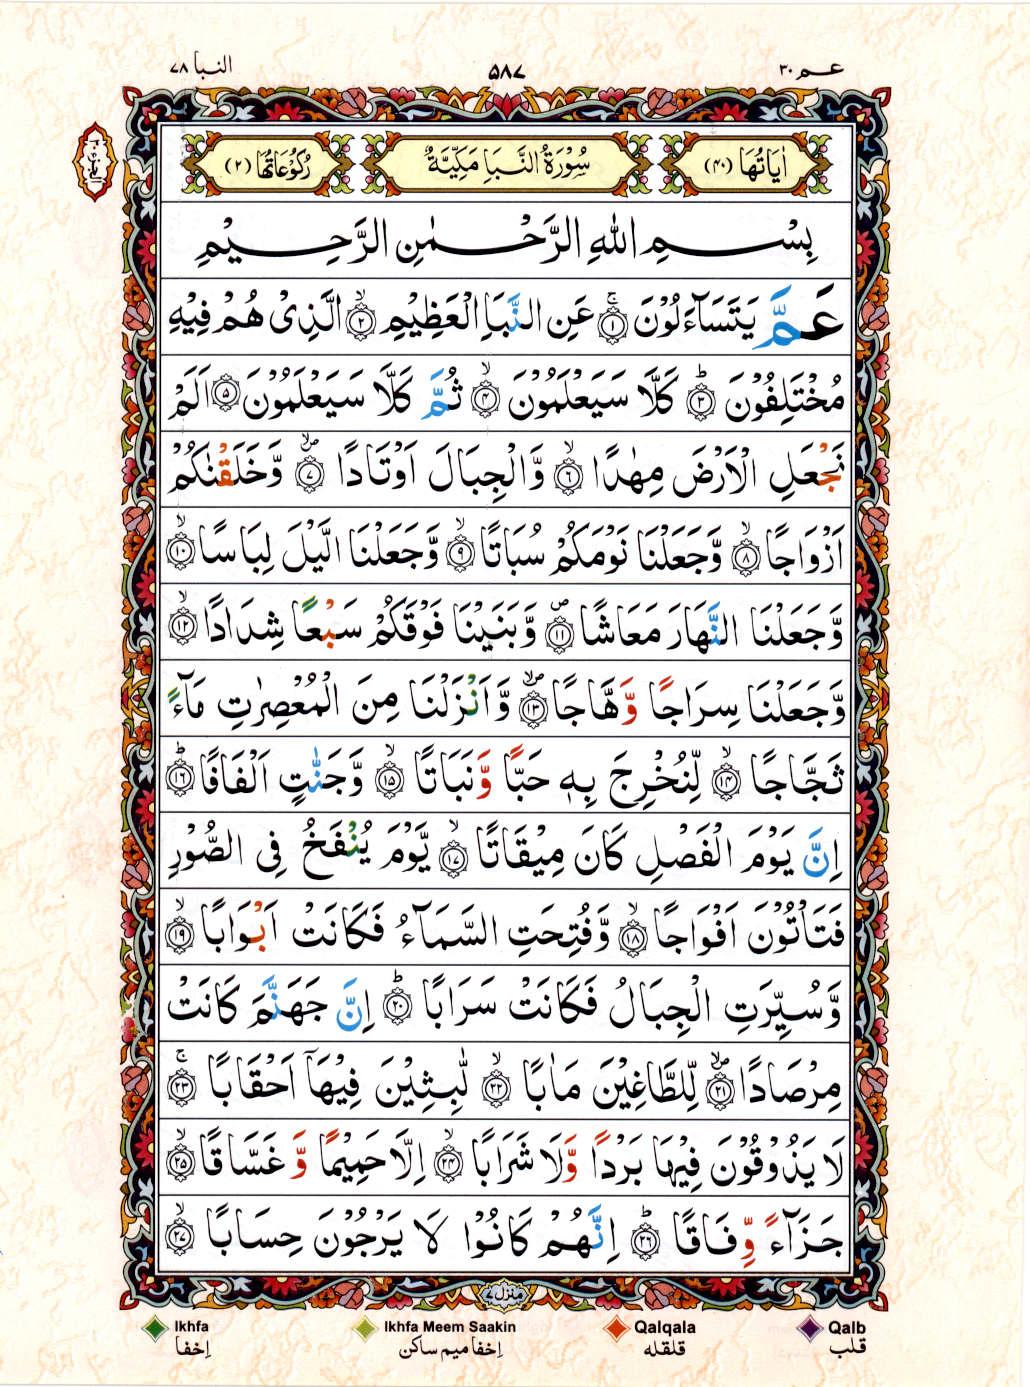 عم ۳۰
۵۸۷
النبا ۷۸
اٰيَاتُهَا (۴۰)
سُوْرَةُ النَّبَاِ مَكِّيَّةٌ
رُكُوْعَاتُهَا (۲)
الجزء ۳۰
بِسْمِ اللهِ الرَّحْمٰنِ الرَّحِيْمِ
عَمَّ يَتَسَآءَلُوْنَ ۚ﴿۱﴾ عَنِ النَّبَاِ الْعَظِيْمِ ۙ﴿۲﴾ الَّذِىْ هُمْ فِيْهِ
مُخْتَلِفُوْنَ ؕ﴿۳﴾ كَلَّا سَيَعْلَمُوْنَ ۙ﴿۴﴾ ثُمَّ كَلَّا سَيَعْلَمُوْنَ ﴿۵﴾ اَلَمْ
نَجْعَلِ الْاَرْضَ مِهٰدًا ۙ﴿۶﴾ وَّالْجِبَالَ اَوْتَادًا ۪ۙ﴿۷﴾ وَّخَلَقْنٰكُمْ
اَزْوَاجًا ۙ﴿۸﴾ وَّجَعَلْنَا نَوْمَكُمْ سُبَاتًا ۙ﴿۹﴾ وَّجَعَلْنَا الَّيْلَ لِبَاسًا ۙ﴿۱۰﴾
وَّجَعَلْنَا النَّهَارَ مَعَاشًا ۪﴿۱۱﴾ وَّبَنَيْنَا فَوْقَكُمْ سَبْعًا شِدَادًا ۙ﴿۱۲﴾
وَّجَعَلْنَا سِرَاجًا وَّهَّاجًا ۪ۙ﴿۱۳﴾ وَّاَنْزَلْنَا مِنَ الْمُعْصِرٰتِ مَآءً
ثَجَّاجًا ۙ﴿۱۴﴾ لِّنُخْرِجَ بِهٖ حَبًّا وَّنَبَاتًا ۙ﴿۱۵﴾ وَّجَنّٰتٍ اَلْفَافًا ؕ﴿۱۶﴾
اِنَّ يَوْمَ الْفَصْلِ كَانَ مِيْقَاتًا ۙ﴿۱۷﴾ يَّوْمَ يُنْفَخُ فِى الصُّوْرِ
فَتَاْتُوْنَ اَفْوَاجًا ۙ﴿۱۸﴾ وَّفُتِحَتِ السَّمَآءُ فَكَانَتْ اَبْوَابًا ۙ﴿۱۹﴾
وَّسُيِّرَتِ الْجِبَالُ فَكَانَتْ سَرَابًا ؕ﴿۲۰﴾ اِنَّ جَهَنَّمَ كَانَتْ
مِرْصَادًا ۪ۙ﴿۲۱﴾ لِّلطَّاغِيْنَ مَاٰبًا ۙ﴿۲۲﴾ لّٰبِثِيْنَ فِيْهَآ اَحْقَابًا ۚ﴿۲۳﴾
لَا يَذُوْقُوْنَ فِيْهَا بَرْدًا وَّلَا شَرَابًا ۙ﴿۲۴﴾ اِلَّا حَمِيْمًا وَّ غَسَّاقًا ۙ﴿۲۵﴾
جَزَآءً وِّفَاقًا ؕ﴿۲۶﴾ اِنَّهُمْ كَانُوْا لَا يَرْجُوْنَ حِسَابًا ۙ﴿۲۷﴾
منزل ۷
Ikhfa
Ikhfa Meem Saakin
Qalqala
Qalb
إخفا
إخفا ميم ساكن
قلقله
قلب